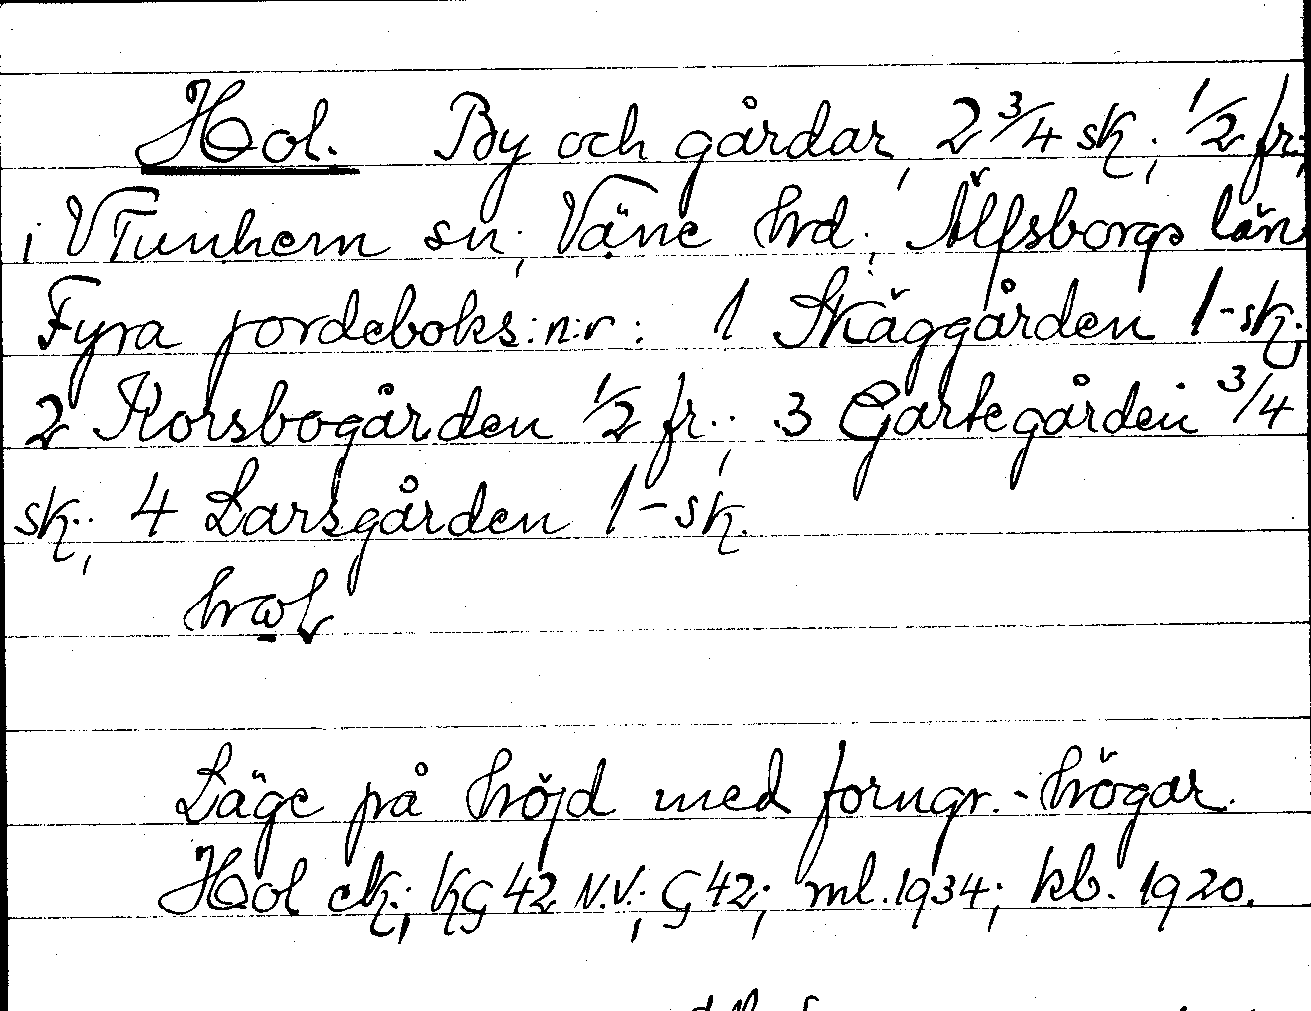 Hol. By och gårdar, 2 3/4 sk.; 1/2 fr.;
i VTunhem sn; Väne hrd.; Älfsborgs län.
Fyra jordeboks:n:r: 1 Skäggården 1-sk.;
2 Korsbogården 1/2 fr.; 3 Gartegården 3/4
sk.; 4 Larsgården 1-sk.
Läge på höjd med forngr.-högar.
Hol ek.; KG 42 N.V.; G 42; ml. 1934; kb. 1920.